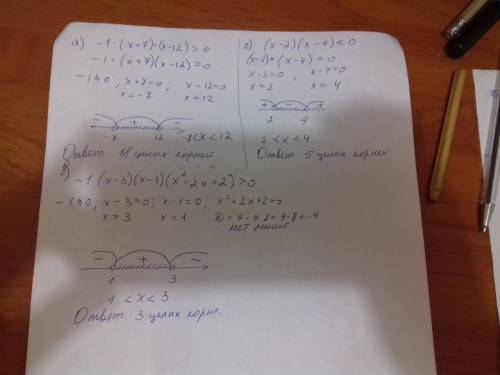 а) -1·(x+7)·(x-12)>0
-1·(x+7)(x-12)=0
-1≠0, x+7=0; x-12=0
x=-7 x=12
- + -
-7 12 -7<x<12
Ответ 18 целых корней
б) (x-2)(x-4)<0
(x-2)*(x-4)=0
x-2=0, x-4=0
x=2 x=4
+ - +
2 4
2<x<4
Ответ 5 целых корней
в) -1(x-3)(x-1)(x²-2x+2)>0
-1≠0, x-3=0; x-1=0; x²+2x+2=0
x=3 x=1 D=4-4·2=4-8=-4
нет
- + -
1 3
1<x<3
Ответ 3 целых корн.